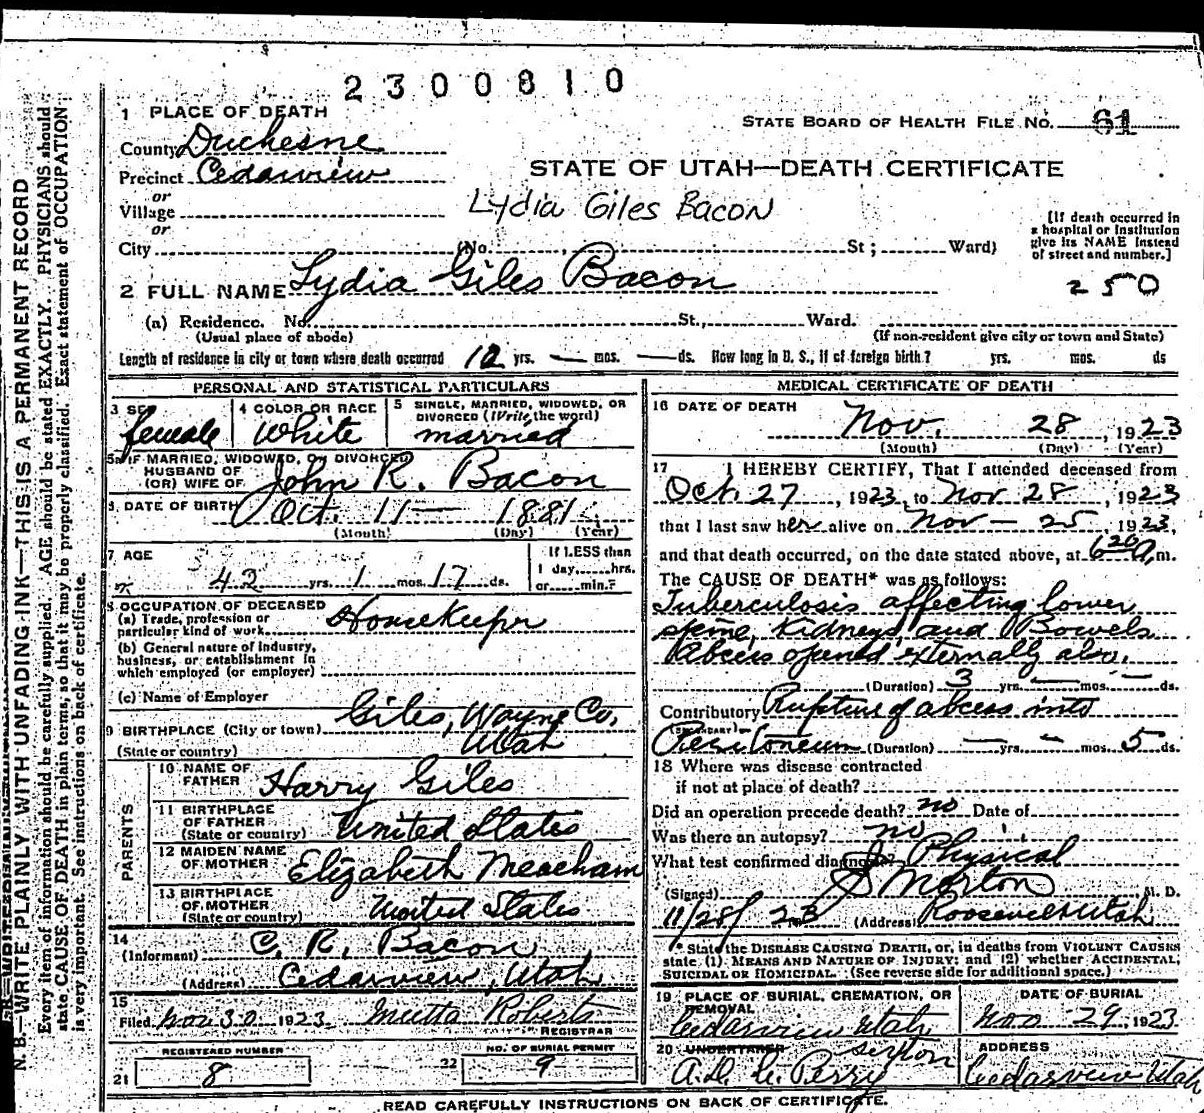 2300810
1 PLACE OF DEATH
STATE BOARD OF HEALTH FILE NO. 61
County Duchesne
Precinct Cedarview
STATE OF UTAH—DEATH CERTIFICATE
or
Village
Lydia Giles Bacon
or
City (No. St; Ward)
[If death occurred in
a hospital or institution
give its NAME instead
of street and number.]
2 FULL NAME Lydia Giles Bacon
250
(a) Residence. No. St., Ward.
(Usual place of abode) (If non-resident give city or town and State)
Length of residence in city or town where death occurred 12 yrs. — mos. — ds. How long in U. S., if of foreign birth? yrs. mos. ds
PERSONAL AND STATISTICAL PARTICULARS
3 SEX 4 COLOR OR RACE 5 SINGLE, MARRIED, WIDOWED, OR
DIVORCED (Write the word)
female White married
5a IF MARRIED, WIDOWED, OR DIVORCED
HUSBAND OF
(OR) WIFE OF John R. Bacon
6. DATE OF BIRTH Oct. 11 — 1881
(Month) (Day) (Year)
7 AGE If LESS than
1 day, hrs.
42 yrs. 1 mos. 17 ds. or min.?
8 OCCUPATION OF DECEASED
(a) Trade, profession or
particular kind of work Housekeeper
(b) General nature of industry,
business, or establishment in
which employed (or employer)
(c) Name of Employer
9 BIRTHPLACE (City or town) Giles, Wayne Co,
(State or country) Utah
PARENTS
10 NAME OF
FATHER Harry Giles
11 BIRTHPLACE
OF FATHER
(State or country) United States
12 MAIDEN NAME
OF MOTHER Elizabeth Meacham
13 BIRTHPLACE
OF MOTHER
(State or country) United States
14
(Informant) C. R. Bacon
(Address) Cedarview, Utah
15
Filed Nov 30 1923 Roberts
REGISTRAR
REGISTERED NUMBER NO. OF BURIAL PERMIT
21 8 22 9
MEDICAL CERTIFICATE OF DEATH
16 DATE OF DEATH
Nov. 28, 1923
(Month) (Day) (Year)
17 I HEREBY CERTIFY, That I attended deceased from
Oct. 27, 1923, to Nov 28, 1923
that I last saw her alive on Nov — 25, 1923,
and that death occurred, on the date stated above, at 620 A, m.
The CAUSE OF DEATH* was as follows:
Tuberculosis affecting lower
spine, Kidneys, and Bowels
Abcess opened externally also.
(Duration) 3 yrs. — mos. — ds.
Contributory Rupture of abcess into
(SECONDARY)
Peritoneum (Duration) — yrs. - mos. 5 ds.
18 Where was disease contracted
if not at place of death?
Did an operation precede death? no Date of
Was there an autopsy? no
What test confirmed diagnosis? Physical
(Signed) Morton M. D.
11/28/23 (Address) Roosevelt Utah
* State the DISEASE CAUSING DEATH, or, in deaths from VIOLENT CAUSES
state (1) MEANS AND NATURE OF INJURY; and (2) whether ACCIDENTAL,
SUICIDAL OR HOMICIDAL. (See reverse side for additional space.)
19 PLACE OF BURIAL, CREMATION, OR
REMOVAL DATE OF BURIAL
Cedarview Utah Nov 29, 1923
20 UNDERTAKER sexton ADDRESS
Perry Cedarview Utah
READ CAREFULLY INSTRUCTIONS ON BACK OF CERTIFICATE.
N. B.—WRITE PLAINLY WITH UNFADING INK—THIS IS A PERMANENT RECORD
Every item of information should be carefully supplied. AGE should be stated EXACTLY. PHYSICIANS should
state CAUSE OF DEATH in plain terms, so that it may be properly classified. Exact statement of OCCUPATION
is very important. See instructions on back of certificate.